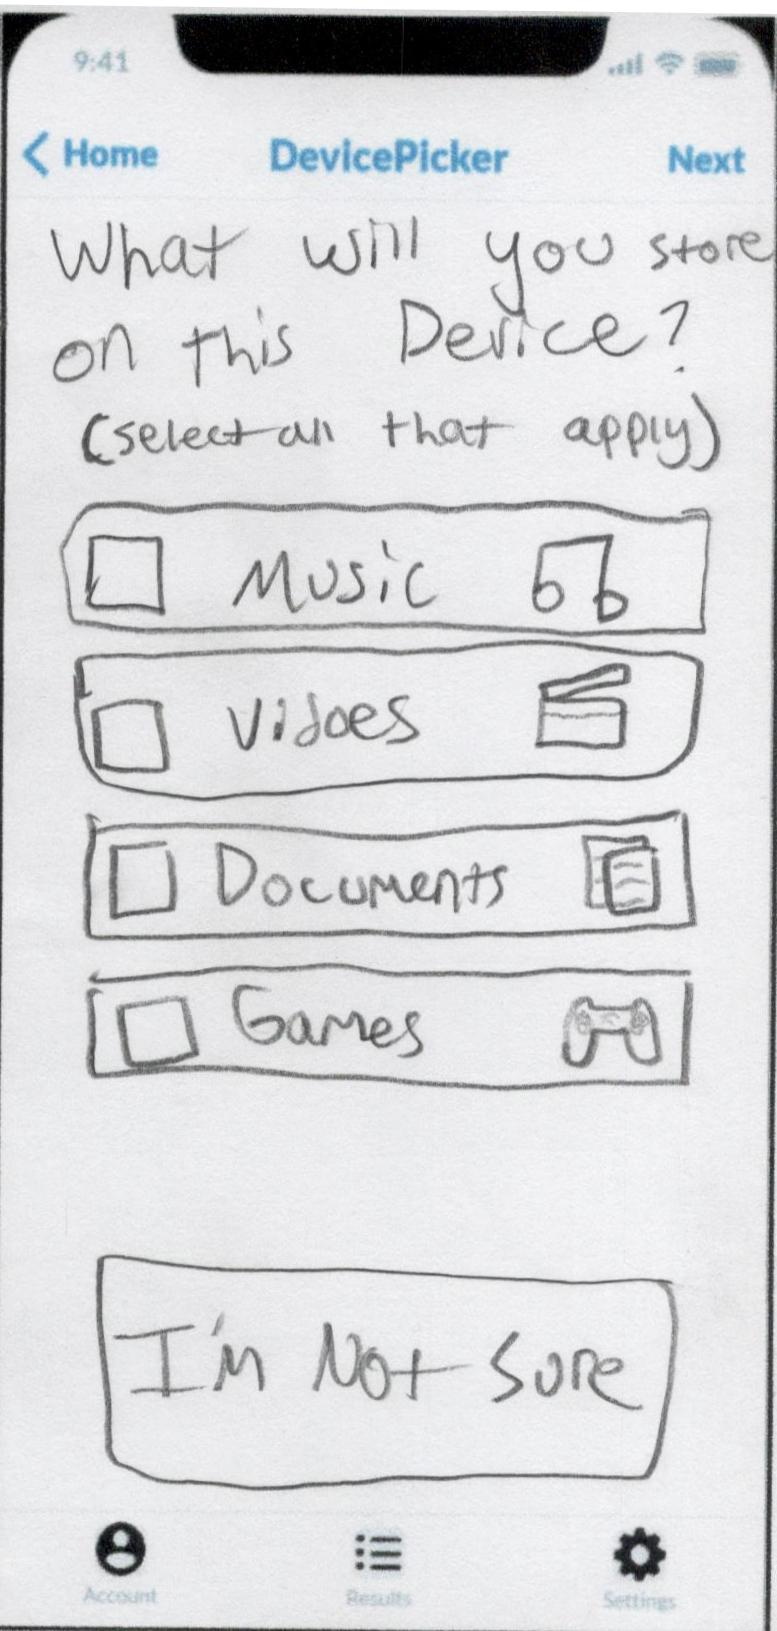 9:41
Home DevicePicker Next
What will you store
on this Device?
(select all that apply)
Music
Vidoes
Documents
Games
I'm Not Sure
Account Results Settings